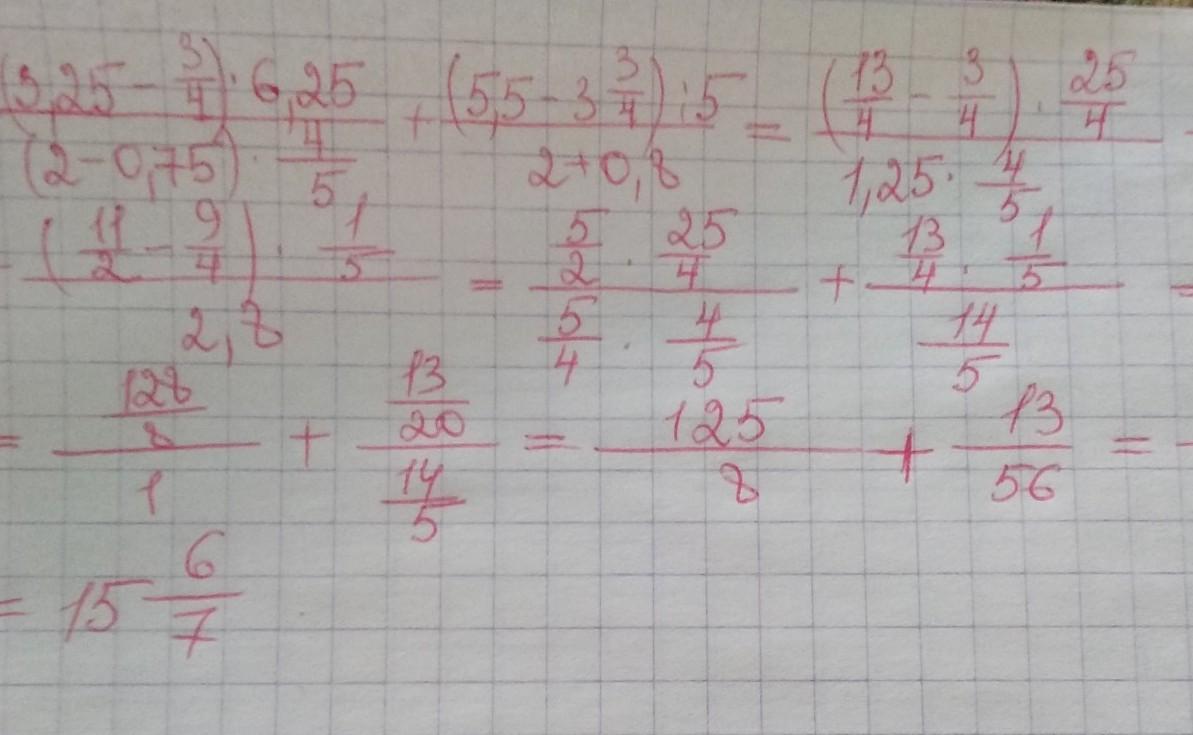 ((3,25 - 3/4) · 6,25)/((2 - 0,75) · 4/5) + ((5,5 - 3 3/4) : 5)/(2 + 0,8) = ((13/4 - 3/4) · 25/4)/(1,25 · 4/5)
((11/2 - 9/4) · 1/5)/(2,8) = (5/2 · 25/4)/(5/4 · 4/5) + (13/4 · 1/5)/(14/5) =
= (128/8)/1 + (13/20)/(14/5) = 125/8 + 13/56 =
= 15 6/7